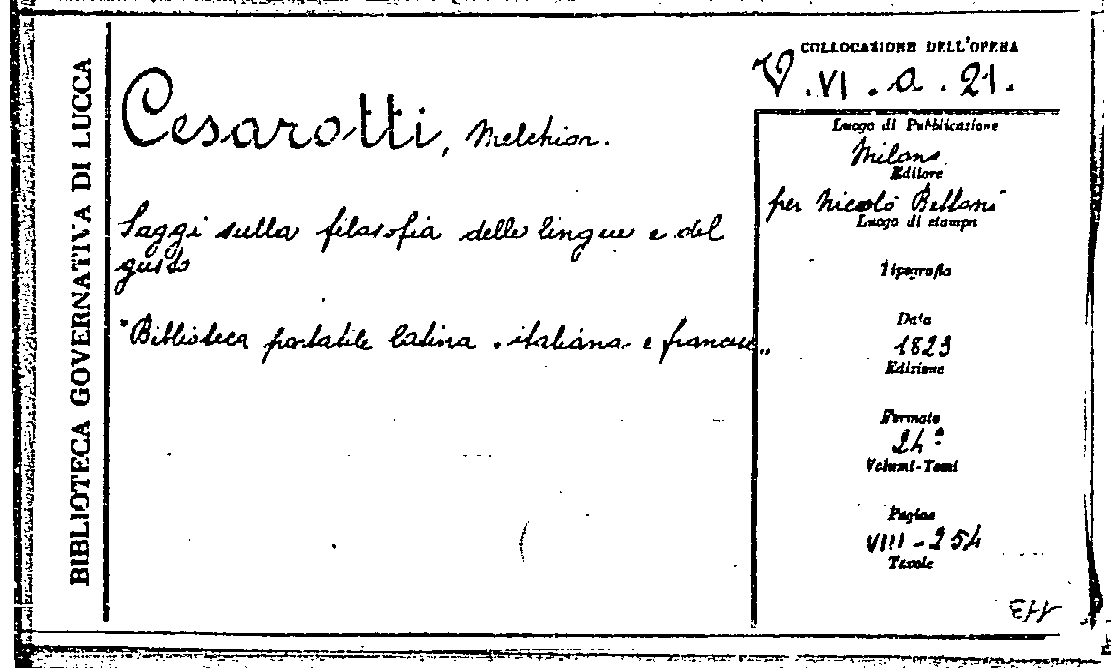 BIBLIOTECA GOVERNATIVA DI LUCCA
COLLOCAZIONE DELL'OPERA
V. VI. a. 21.
Cesarotti, Melchior.
Saggi sulla filosofia delle lingue e del
gusto
"Biblioteca portatile latina, italiana e francese„
Luogo di Pubblicazione
Milano
Editore
per Nicolò Bettoni
Luogo di stampa
Tipografia
Data
1823
Edizione
Formato
24°
Volumi-Tomi
Pagine
VIII-254
Tavole